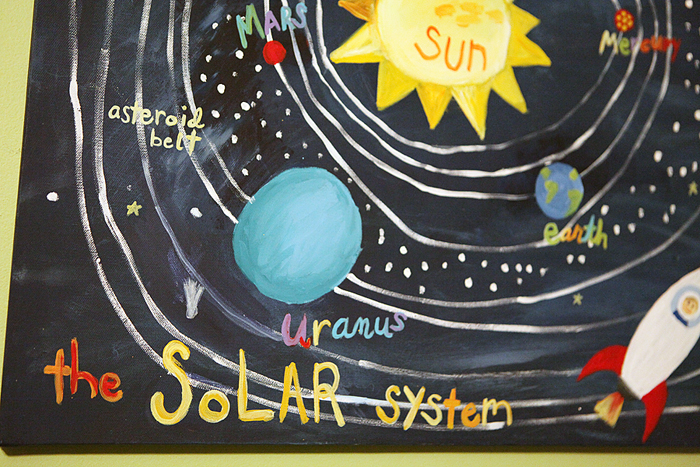 MARS
Sun
Mercury
asteroid
belt
earth
Uranus
the SoLAR system